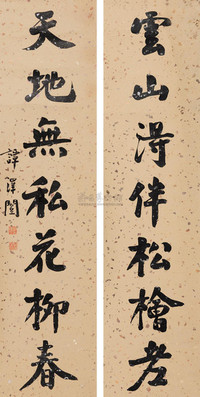 雲山得伴松檜老
天地無私花柳春
譚澤闓